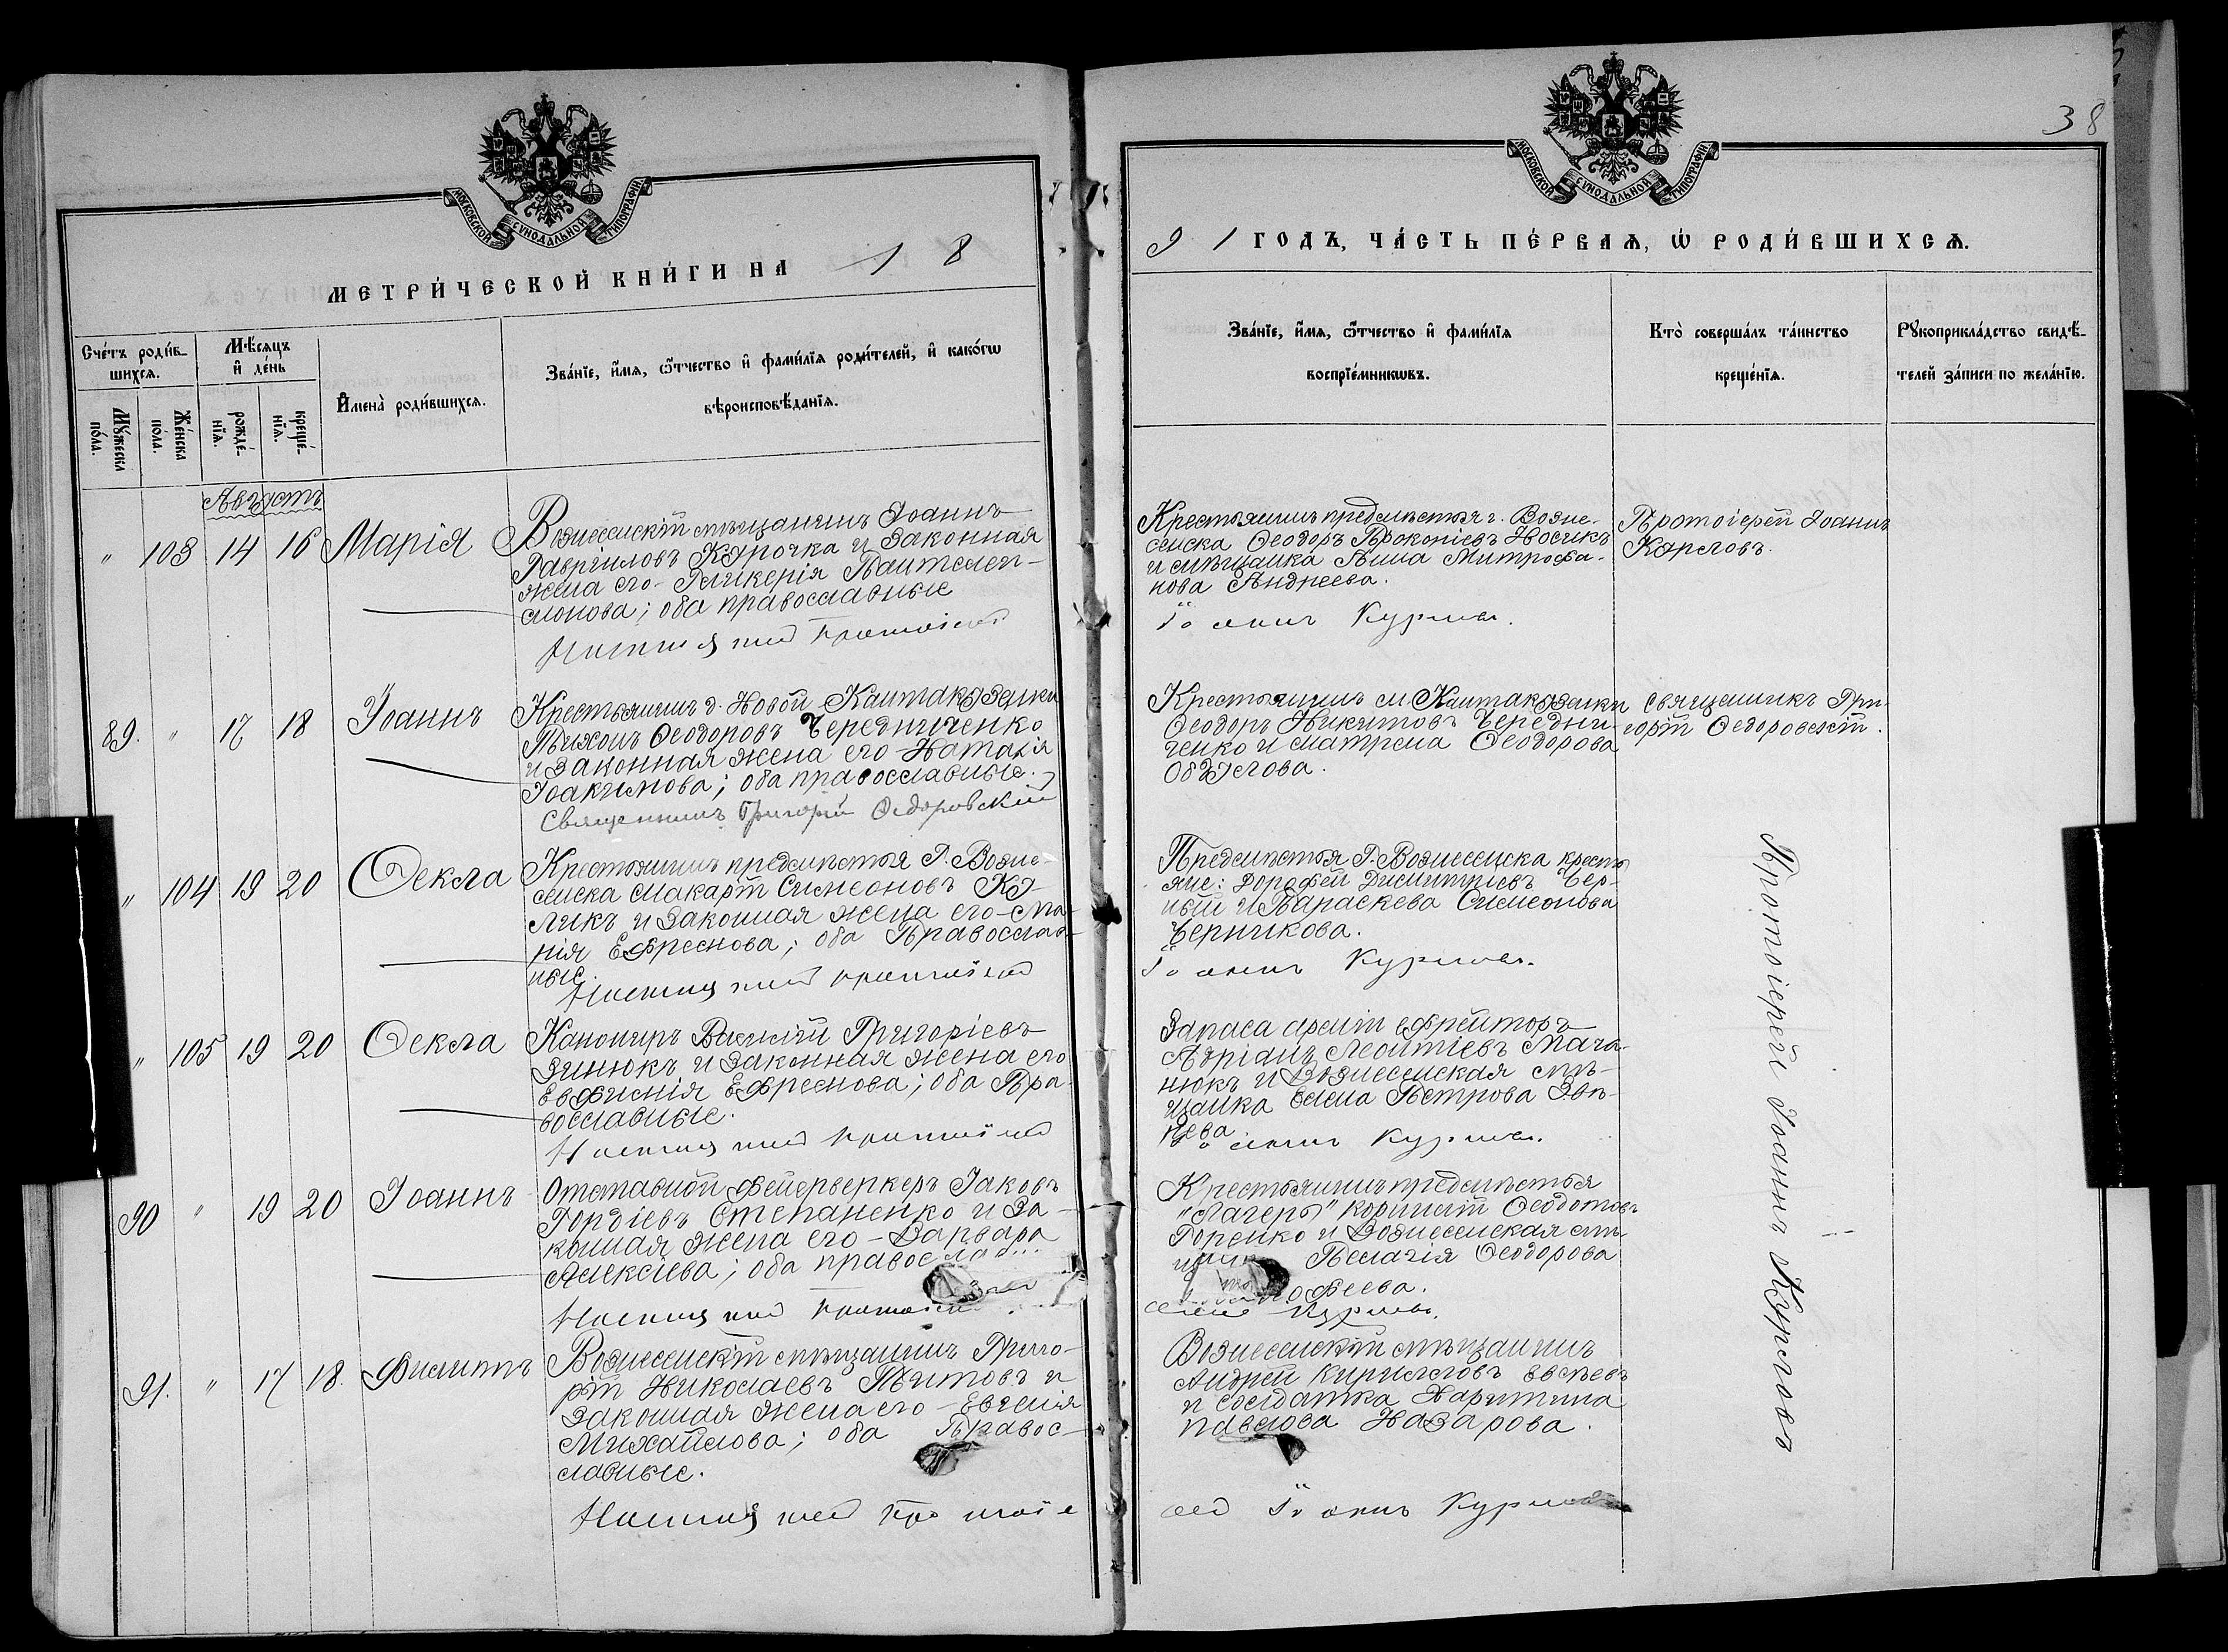 38
МОСКОВСКОЙ СѴНОДАЛЬНОЙ ТИПОГРАФІИ
МОСКОВСКОЙ СѴНОДАЛЬНОЙ ТИПОГРАФІИ
МЕТРИ́ЧЕСКОЙ КНИ́ГИ НА 1 8
9 1 ГОДЪ, ЧА́СТЬ ПЕ́РВАѦ, Ѡ РОДИ́ВШИХСѦ.
Сче́тъ роди́в-
шихсѧ.
Мꙋ́жеска
по́ла.
Же́нска
по́ла.
Мѣ́сѧцъ
и҆ де́нь
рожде́-
нїѧ.
креще́-
нїѧ.
И҆мена̀ роди́вшихсѧ.
Зва́нїе, и҆́мѧ, ѻ҆́тчество и҆ фами́лїѧ роди́телей, и҆ како́гѡ
вѣроисповѣ́данїѧ.
Зва́нїе, и҆́мѧ, ѻ҆́тчество и҆ фами́лїѧ
воспрїе́мникѡвъ.
Кто̀ соверша́лъ та́инство
креще́нїѧ.
Рꙋкоприкла́дство свидѣ́-
телей за́писи по жела́нїю.
Августъ
" 103 14 16 Марія
Вознесенскій мѣщанинъ Іоаннъ
Гавріиловъ Курочка и законная
жена его Гликерія Пантелеи-
монова; оба православные
Настоятель протоіерей
Крестьянинъ предмѣстья г. Возне-
сенска Ѳеодоръ Прокопіевъ Носикъ
и мѣщанка Анна Митрофа-
нова Андреева.
Іоаннъ Курловъ.
Протоіерей Іоаннъ
Курловъ.
89. " 17 18 Іоаннъ
Крестьянинъ д. Новой Кантакузенки
Тихонъ Ѳеодоровъ Чередниченко
и законная жена его Наталія
Іоакимова; оба православные.
Священникъ Григорій Ѳедоровскій
Крестьянинъ м Кантакузенки
Ѳеодоръ Никитовъ Чередни-
ченко и Матрена Ѳеодорова
Обухова.
Священникъ Гри-
горій Ѳедоровскій.
" 104 19 20 Ѳекла
Крестьянинъ предмѣстья г. Возне-
сенска Макарій Симеоновъ Ку-
ликъ и законная жена его Ма-
рія Ефремова; оба православ-
ные.
Настоятель протоіерей
Предмѣстья г. Вознесенска кресть
яне: Дорофей Димитріевъ Чер-
ный и Параскева Симеонова
Черникова.
Іоаннъ Курловъ.
" 105 19 20 Ѳекла
Канониръ Василій Григоріевъ
Зинюкъ и законная жена его
Евфимія Ефремова; оба пра-
вославные.
Настоятель протоіерей
Запаса арміи ефрейторъ
Адріанъ Леонтіевъ
и Вознесенская мѣ-
щанка Елена Петрова
Іоаннъ Курловъ.
90 " 19 20 Іоаннъ
Отставной фейерверкеръ Іаковъ
Гордіевъ Степаненко и за-
конная жена его - Варвара
Алексіева; оба правосла...
Настоятель протоіерей
Крестьянинъ предмѣстья
"Лагеръ" Корнилій Ѳеодотовъ
Горенко и Вознесенская мѣ-
Пелагія Ѳеодорова
Курловъ.
91. " 17 18. Филиппъ
Вознесенскій мѣщанинъ Григо-
рій Николаевъ Титовъ и
законная жена его - Евгенія
Михайлова; оба правос-
лавные.
Настоятель протоіе
Вознесенскій мѣщанинъ
Андрей Кирилловъ Евсѣевъ
и солдатка Харитина
Павлова Назарова.
рей Іоаннъ Курловъ
Протоіерей Іоаннъ Курловъ